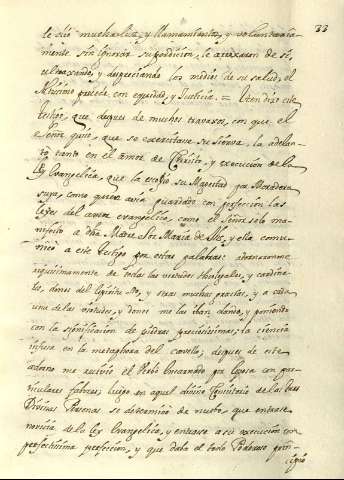 33
le dió mucha luz, y llamamientos, y voluntaria-
mente sin ignorar su perdicion, le arrojaron de sí,
ultraxando, y despreciando los medios de su salud, el
Altissimo procede con equidad, y Justicia. = Iten dize este
testigo, que despues de muchos travaxos, con que el
Señor quiso, que se exercitase su Sierva, la adelan-
tó tanto en el amor de Christo, y execución de la
Ley Evangelica, que la escogió su Magestad por heredera
suya, como quien avia guardado con perfeccion las
leyes del amor evangelico, como el Señor se lo mani-
festó a dha Madre Sor Maria de Jhs, y ella comu-
nicó a este testigo por estas palabras: adornaronme
riquissimamente de todas las virtudes theologales, y cardina-
les, dones del Espiritu Sto, y otras muchas gracias, y a cada
una de las virtudes, y dones me las iban dando, y poniendo
con la significacion de piedras preciosissimas; la ciencia
infusa en la metaphora del cavello; despues de este
adorno me recivió el Verbo Encarnado por Esposa con par-
ticulares favores; luego en aquel divino Consistorio de las tres
Divinas Personas se determinó de nuevo, que entrase
novicia de la ley Evangelica, y entrase a su execución con
perfectissima perfeccion, y que daba el todo Poderoso prin-
cipio